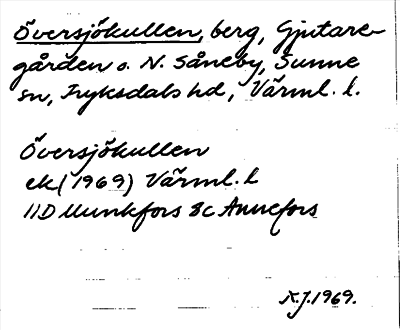 Översjökullen, berg, Gjutare-
gården o. N. Såneby, Sunne
sn, Fryksdals hd, Värml. l.
Översjökullen
ek (1969) Värml. l
11D Munkfors 8c Annefors
K.J. 1969.